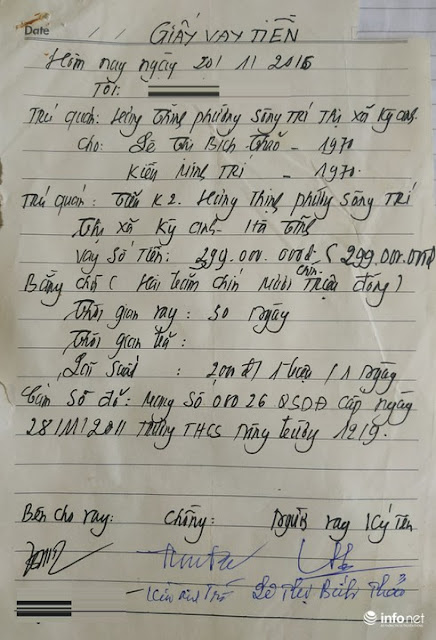 Date
GIẤY VAY TIỀN
Hôm nay ngày 20/11/2015
Tôi:
Trú quán: Hưng Thịnh phường Sông Trí Thị xã Kỳ Anh
Cho: Lê Thị Bích Thảo - 1970
Kiều Minh Trí - 1970.
Trú quán: K2. Hưng Thịnh phường Sông Trí
Thị xã Kỳ Anh - Hà Tĩnh
Vay Số Tiền: 299.000.000đ (299.000.000đ
Bằng chữ (Hai trăm chín mươi chín Triệu đồng)
Thời gian vay: 30 ngày
Thời gian trả:
Lãi suất: 2000đ/1 triệu/1 ngày
Cầm Sổ đỏ: Mang Số 080 26 QSDĐ cấp ngày
28/11/2011 THCS nông trường 12/9.
Bên cho vay: Chồng: Người vay ký tên
Lê Thị Bích Thảo
infonet